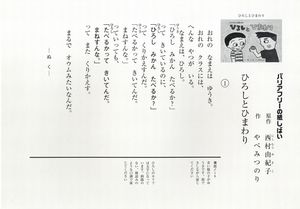 バリアフリーの紙しばい
ひろしとひまわり
原作 西村由紀子
作 やべみつのり
①
おれの なまえは ゆうき。
おれの クラスには、
へんな やつが いる。
なまえは ひろし。
「ひろし みかん たべるか?」
って きいているのに、
「ひろし みかん たべるか?」
って くりかえすんだ。
「たべるかって きいてんだ。
まねすんな。」
って いっても、
「たべるかって きいてんだ。
まねすんな。」
って また くりかえす。
まるで オウムみたいなんだ。
―ぬ く―